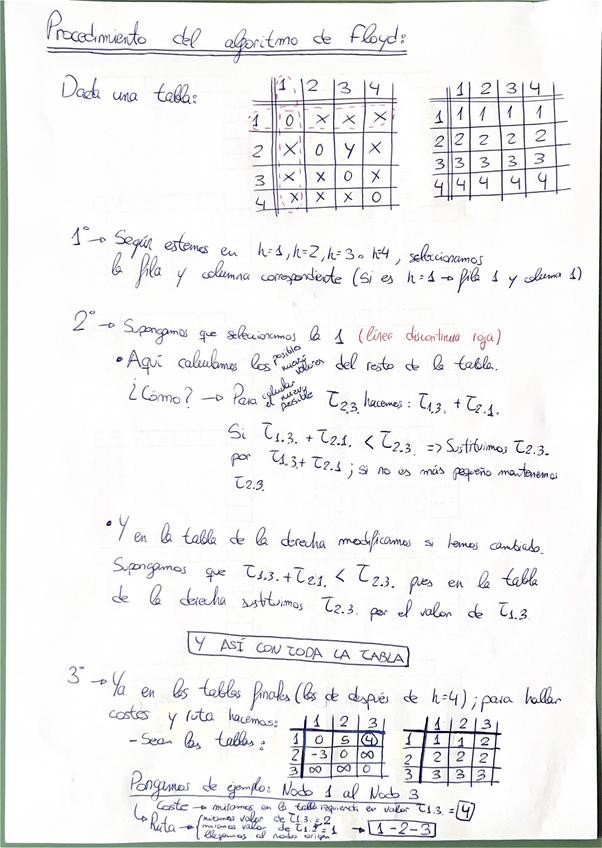 Procedimiento del algoritmo de Floyd:
Dada una tabla:
1 2 3 4
1 0 x x x
2 x 0 y x
3 x x 0 x
4 x x x 0
1 2 3 4
1 1 1 1 1
2 2 2 2 2
3 3 3 3 3
4 4 4 4 4
1º → Según estemos en h=1, h=2, h=3 o h=4, seleccionamos
la fila y columna correspondiente (Si es h=1 → fila 1 y columna 1)
2º → Supongamos que seleccionamos la 1 (línea discontinua roja)
• Aquí calculamos los posibles nuevos valores del resto de la tabla.
¿Cómo? → Para calcular el nuevo posible τ2.3. hacemos: τ1.3. + τ2.1.
Si τ1.3. + τ2.1. < τ2.3. => Sustituimos τ2.3.
por τ1.3. + τ2.1.; si no es más pequeño mantenemos
τ2.3.
• Y en la tabla de la derecha modificamos si hemos cambiado.
Supongamos que τ1.3. + τ2.1. < τ2.3. pues en la tabla
de la derecha sustituimos τ2.3. por el valor de τ1.3.
Y ASÍ CON TODA LA TABLA
3º → Ya en las tablas finales (las de después de h=4); para hallar
costes y ruta hacemos:
- Sean las tablas:
1 2 3
1 0 5 4
2 -3 0 ∞
3 ∞ ∞ 0
1 2 3
1 1 1 2
2 2 2 2
3 3 3 3
Pongamos de ejemplo: Nodo 1 al Nodo 3
Coste → miramos en la tabla izquierda el valor τ1.3. = 4
↳ Ruta → miramos valor de τ1.3. = 2
miramos valor de τ1.2 = 1 → 1-2-3
llegamos al nodo origen